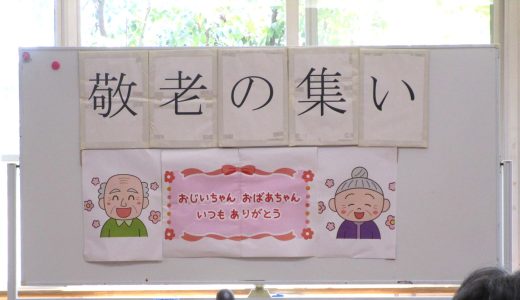 敬老の集い
おじいちゃん おばあちゃん
いつも ありがとう